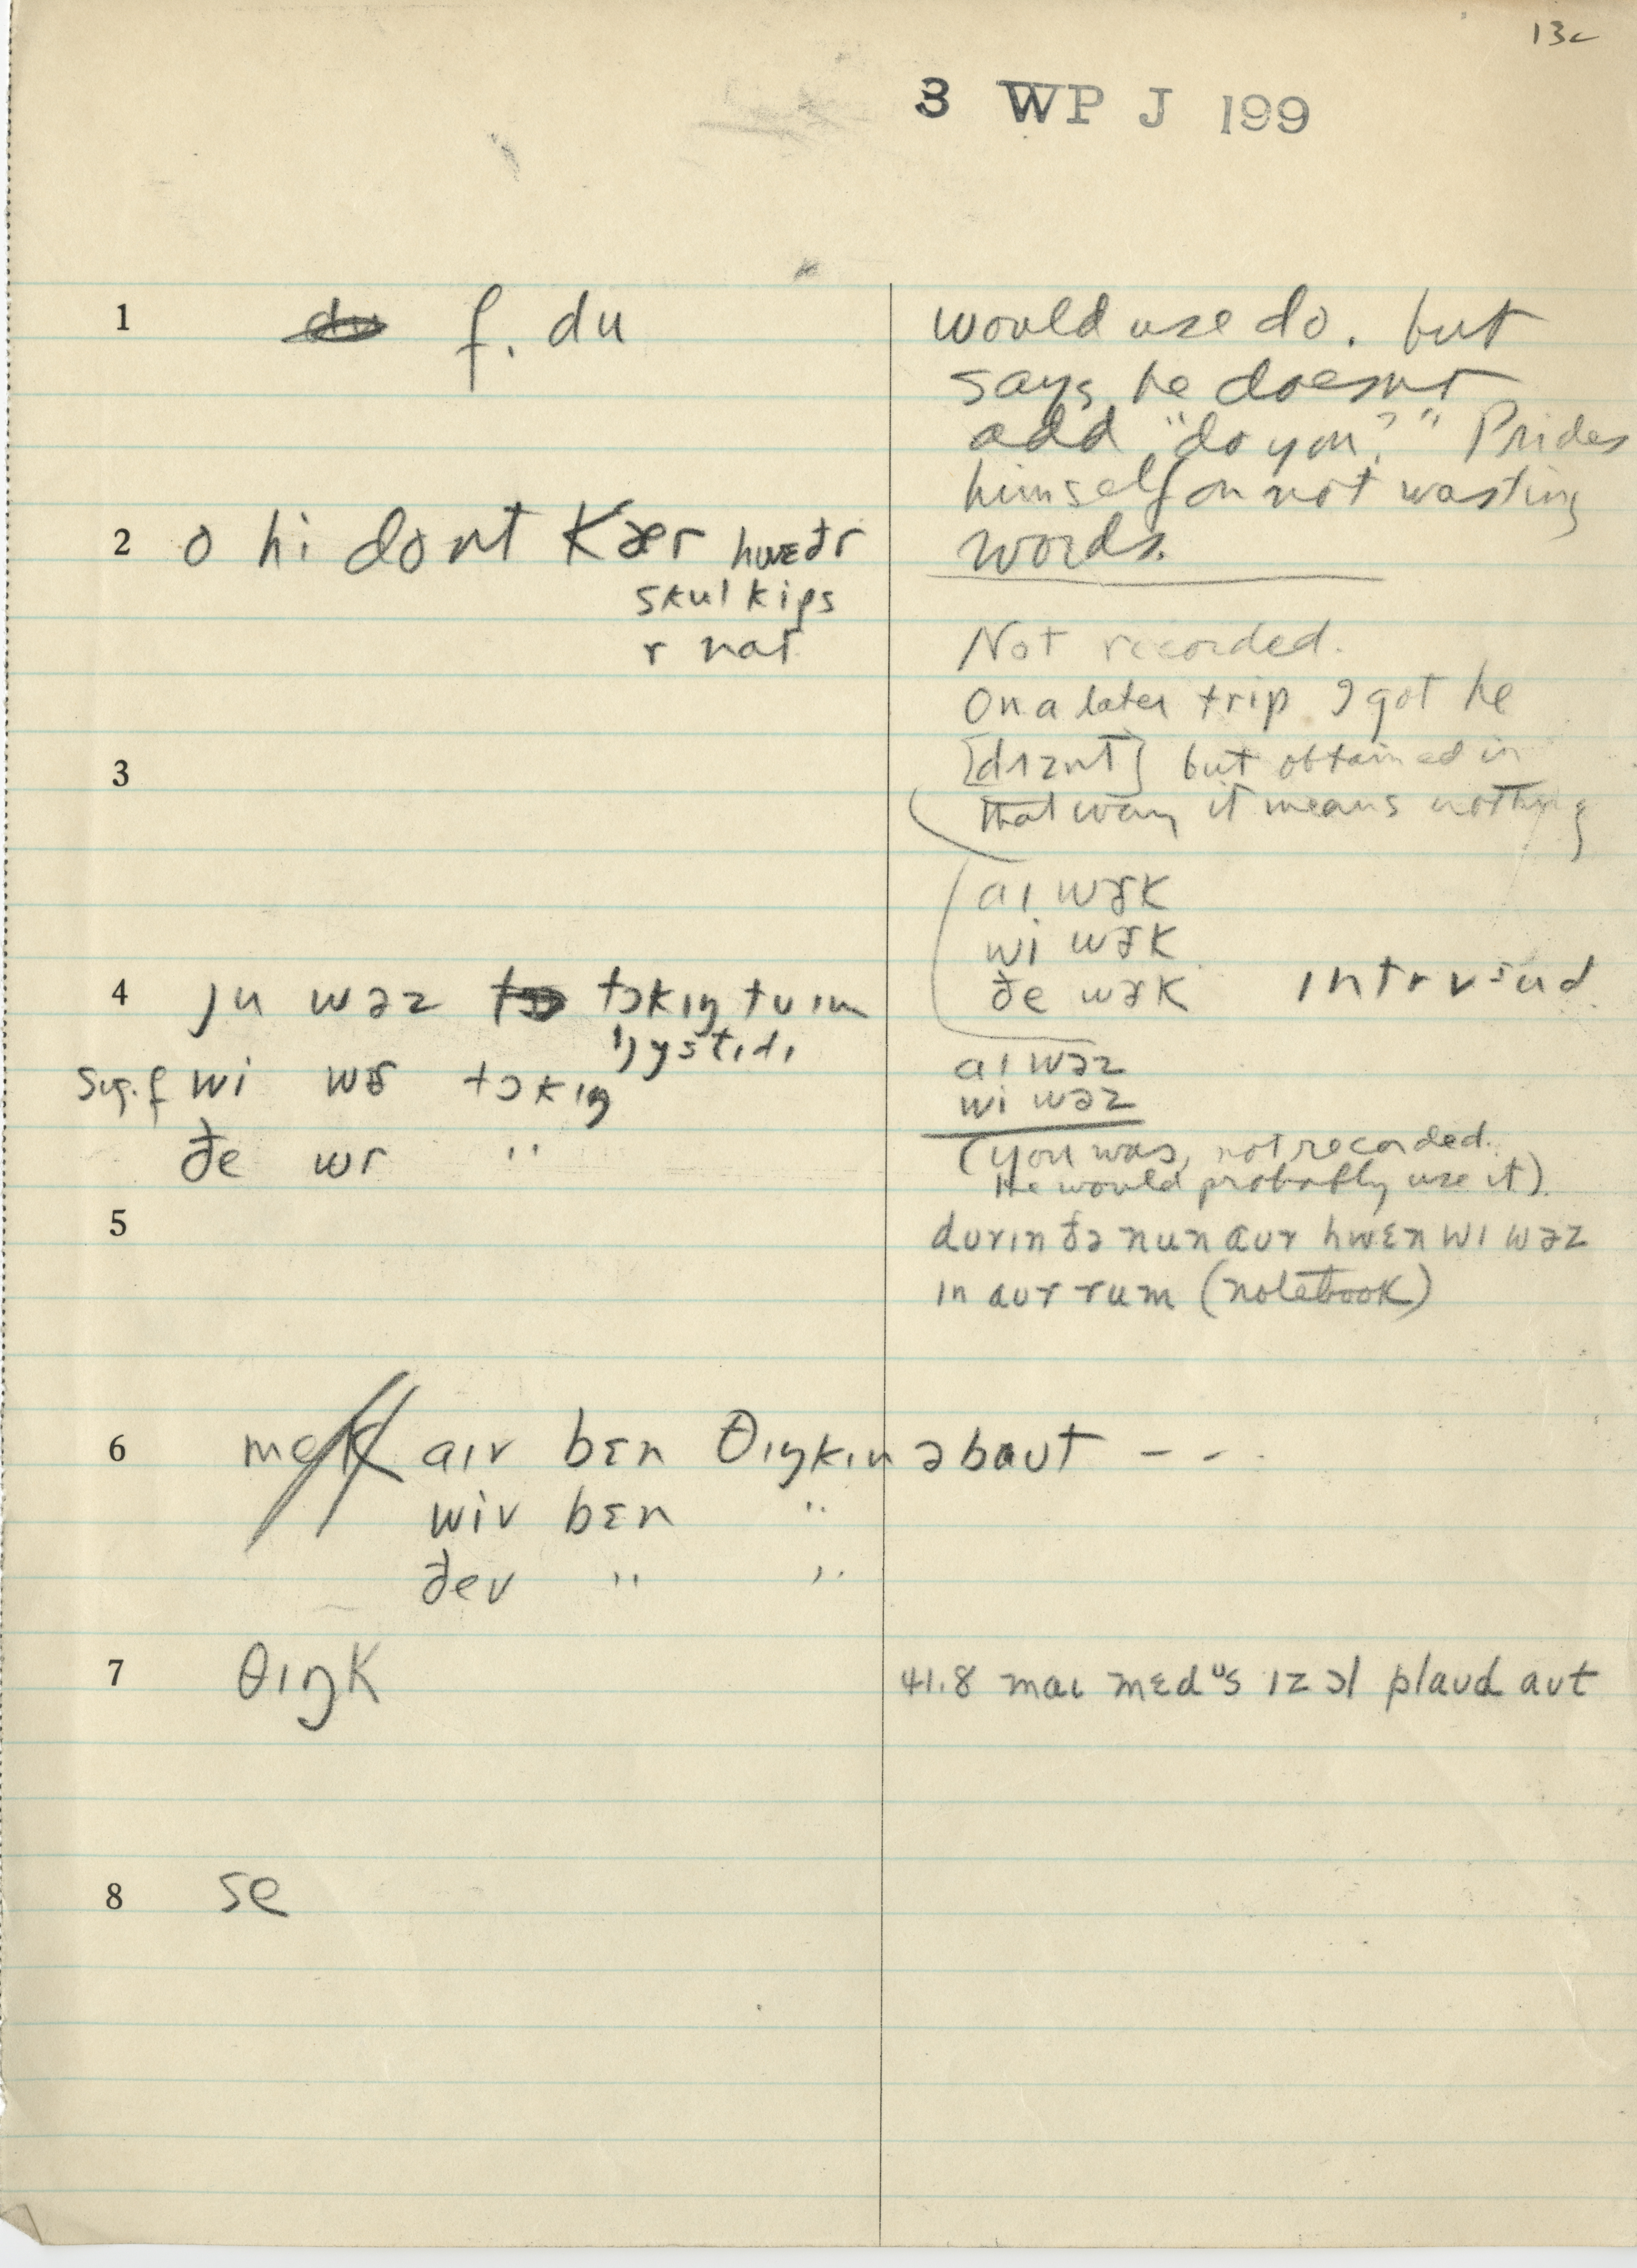 13c
3 WP J 199
1 f. du
would use do. but
says he doesnt
add "do you?" Prides
himself on not wasting
words.
2 o hi dont kær hwɛðr
skul kips
r nat
Not recorded.
On a later trip I got he
[dɪznt] but obtained in
that way it means nothing
3
aɪ wɚk
wi wɚk
ðe wɚk
4 ju wəz tɔkɪŋ tu ɪm
sug. f wi wɚ tɔkɪŋ
ðe wr "
aɪ wəz
wi wəz
(you was, not recorded.
He would probably use it).
5
durɪn ðə nun aur hwɛn wi wəz
in aur rum (notebook)
6 aɪv bɛn θɪŋkɪn əbaut - - -
wiv bɛn "
ðev " "
7 θɪŋk
41.8 maɪ mɛdus ɪz ɔl plaud aut
8 se